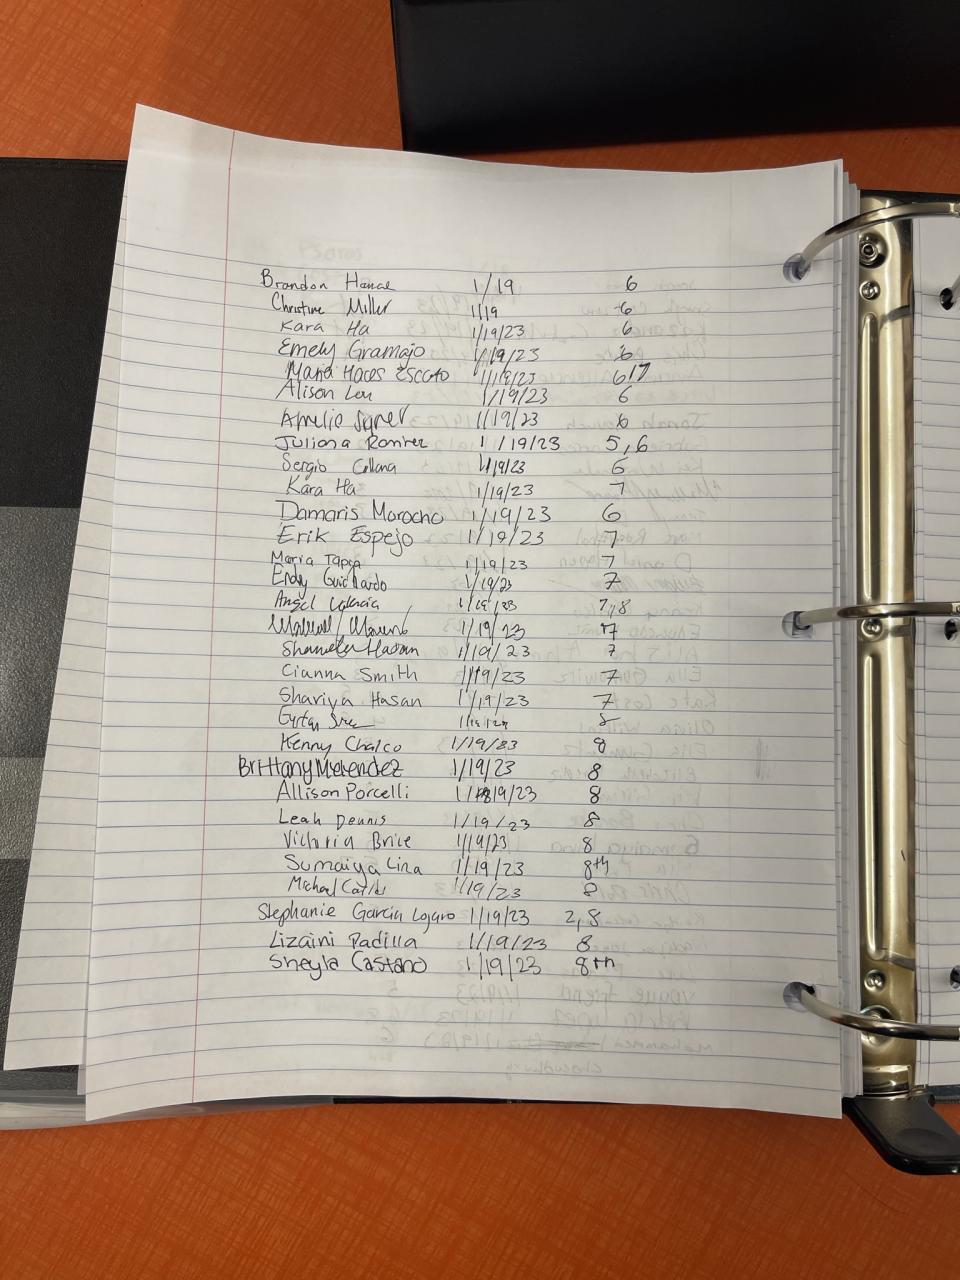 Brandon 1/19 6
Christine Miller 1/19 6
Kara Ha 1/19/23 6
Emely Gramajo 1/19/23 6
Maria Escoto 1/19/23 6
Alison 1/19/23 6
Amelie 1/19/23 6
Juliana Ramirez 1/19/23 5,6
Sergio 1/19/23 6
Kara Ha 1/19/23 7
Damaris Morocho 1/19/23 6
Erik Espejo 1/19/23 7
Maria Tapia 1/19/23 7
Endy Guichardo 1/19/23 7
Angel Valencia 7,8
1/19/23 7
Hasan 1/19/23 7
Cianna Smith 1/19/23 7
Shariya Hasan 1/19/23 7
8
Kenny Chalco 1/19/23 8
Brittany Melendez 1/19/23 8
Allison Porcelli 8
Leah Dennis 1/19/23 8
Victoria Brice 1/19/23 8
Sumaiya Lina 1/19/23 8th
Michael 1/19/23 8
Stephanie Garcia 1/19/23 2,8
Lizaini Padilla 1/19/23 8
Sheyla Castano 1/19/23 8th